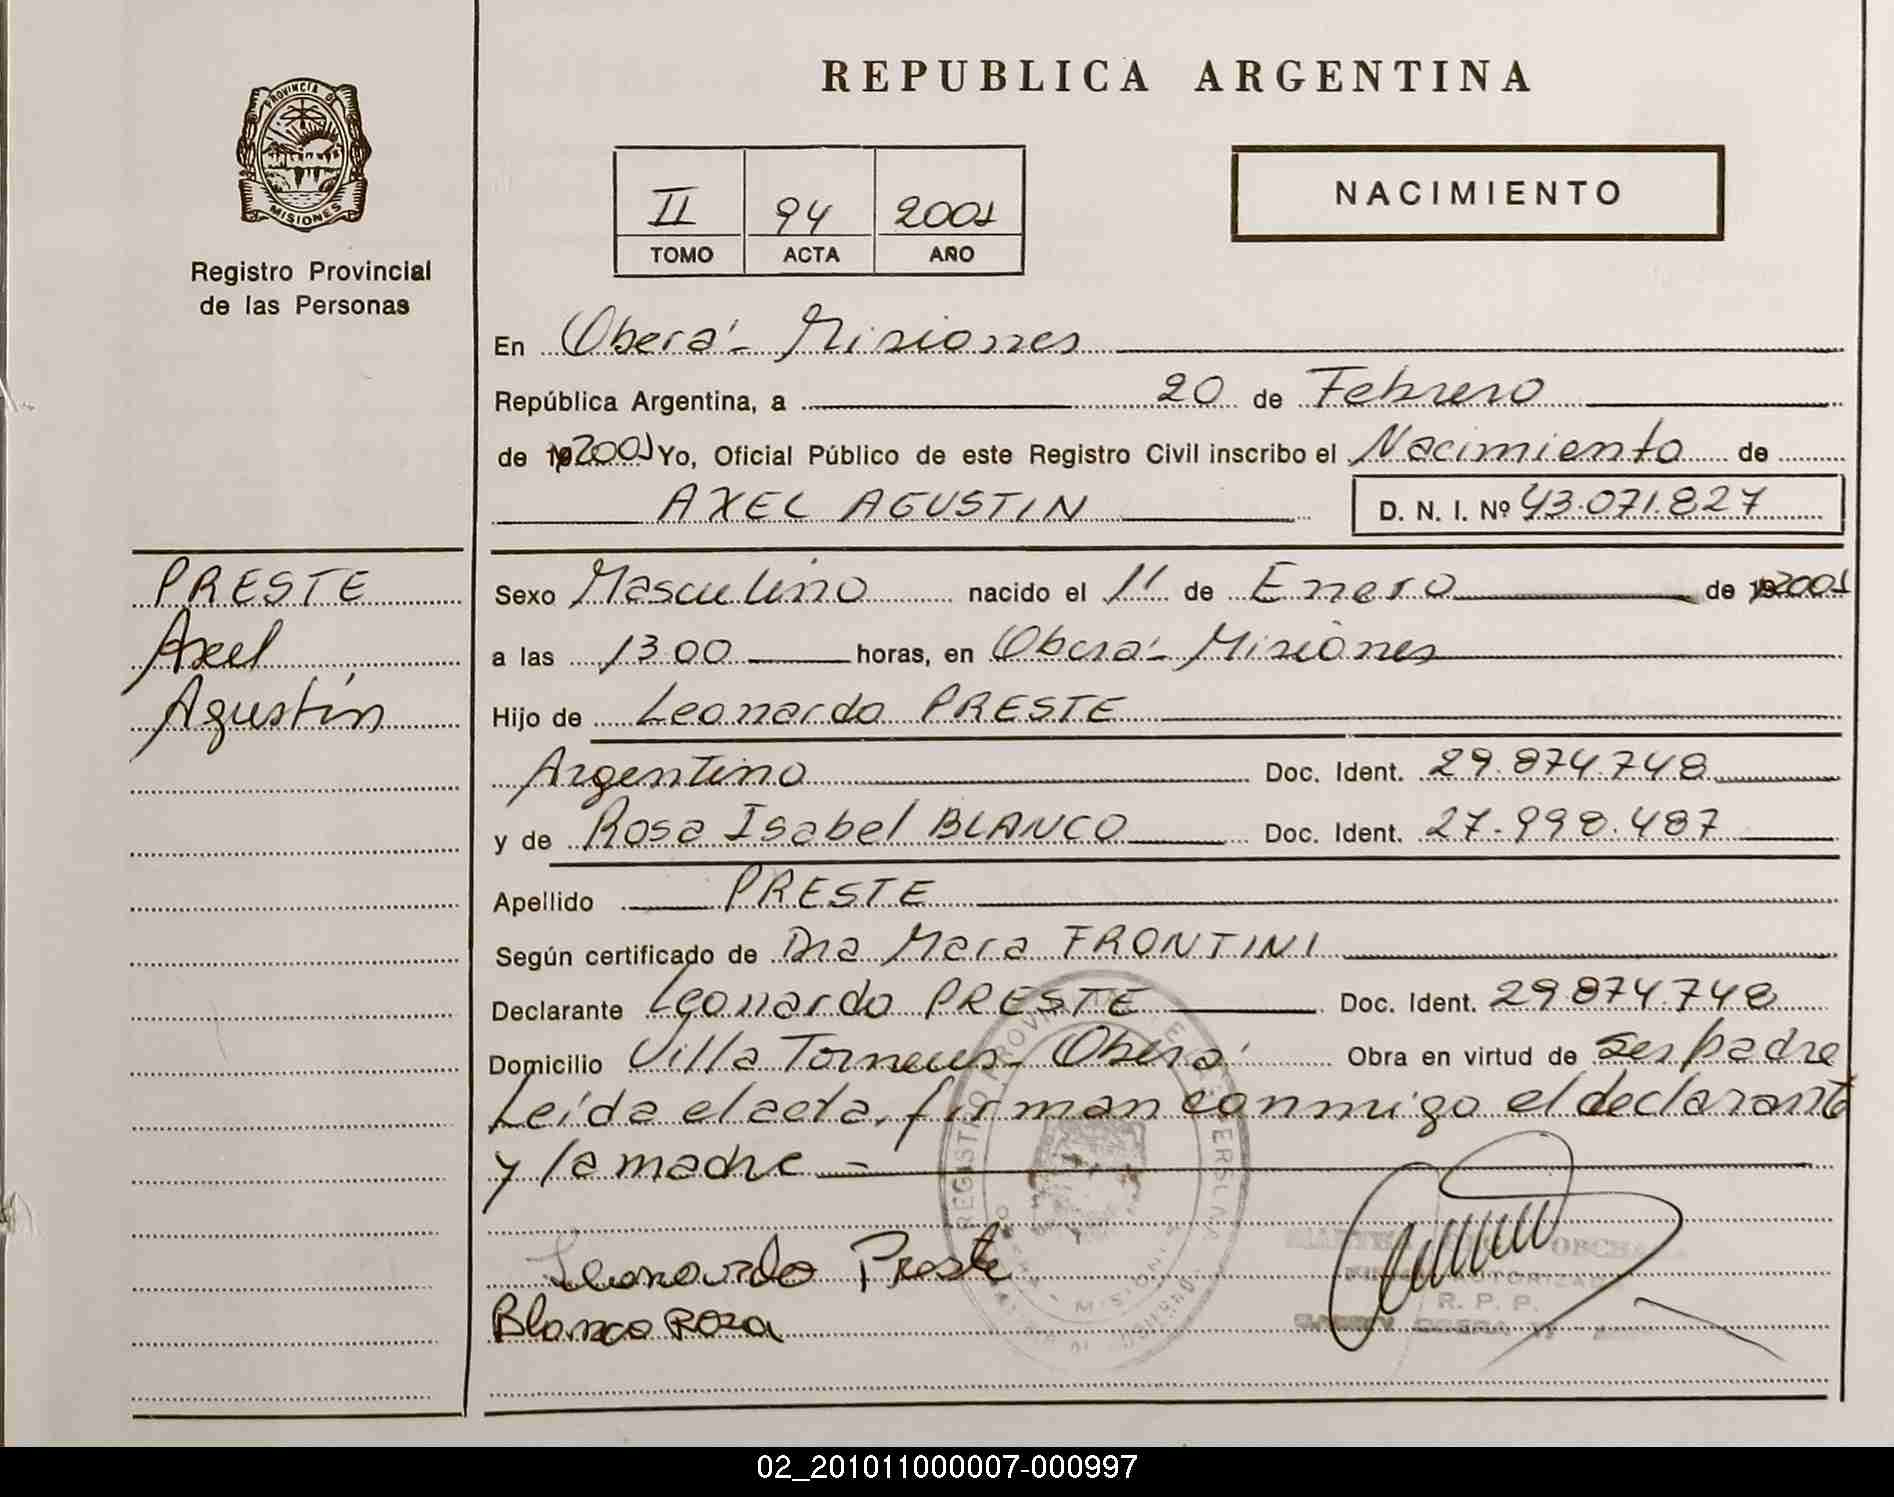 PROVINCIA DE
MISIONES
Registro Provincial
de las Personas
REPUBLICA ARGENTINA
II 94 2001
TOMO ACTA AÑO
NACIMIENTO
En Oberá - Misiones
República Argentina, a 20 de Febrero
de 19 2001 Yo, Oficial Público de este Registro Civil inscribo el Nacimiento de
AXEL AGUSTIN D. N. I. Nº 43.071.827
PRESTE
Axel
Agustín
Sexo Masculino nacido el 11 de Enero de 19 2001
a las 13 00 horas, en Oberá - Misiones
Hijo de Leonardo PRESTE
Argentino Doc. Ident. 29.874.748
y de Rosa Isabel BLANCO Doc. Ident. 27.998.487
Apellido PRESTE
Según certificado de Dra Mara FRONTINI
Declarante Leonardo PRESTE Doc. Ident. 29.874.748
Domicilio Villa Torneus - Oberá Obra en virtud de ser padre
Leída el acta, firman conmigo el declarante
y la madre
Leonardo Preste
Blanco Rosa
R. P. P.
02_201011000007-000997